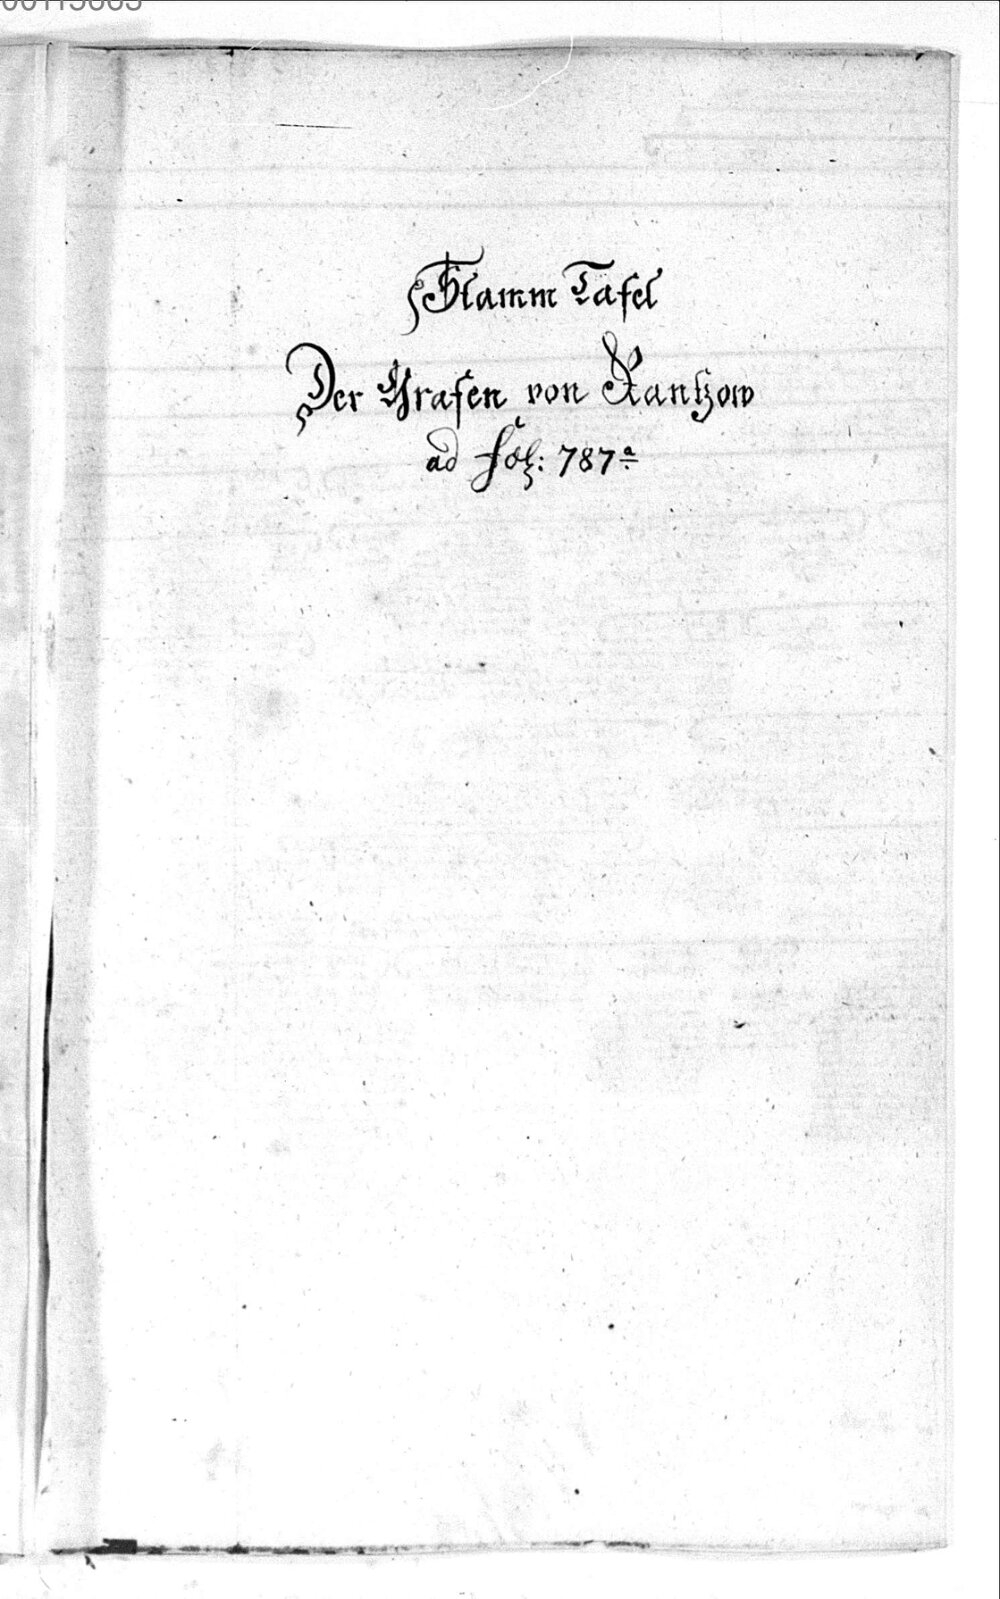 Stamm Tafel
Der Grafen von Rantzow
ad Fol: 787a